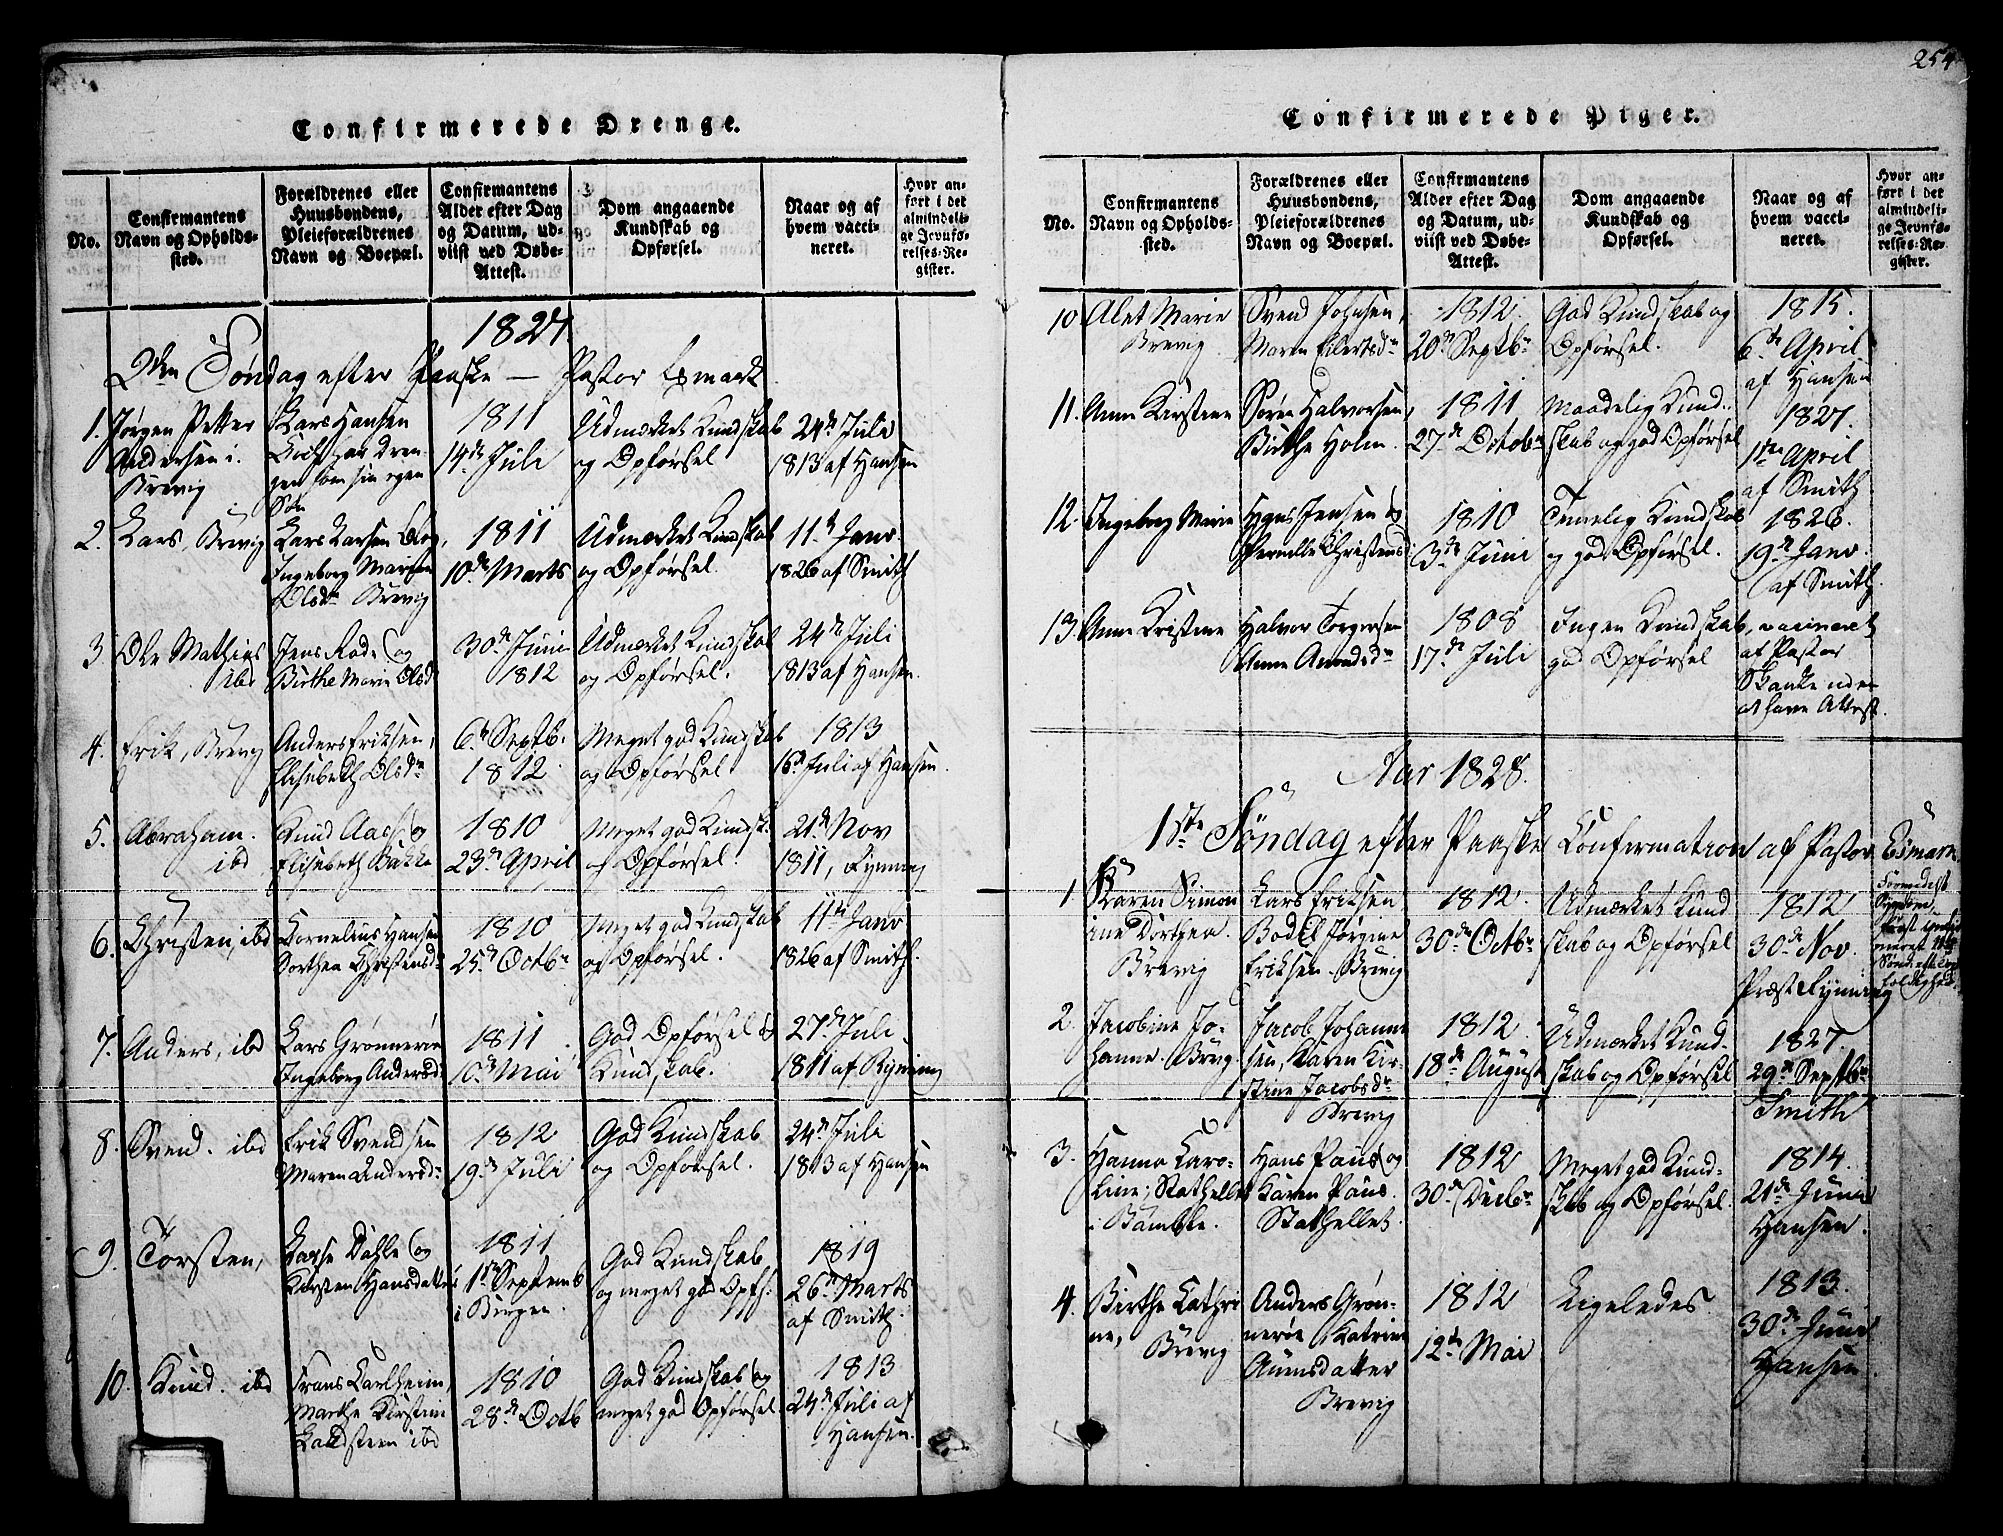 254
Confirmerede Drenge.
No.
Confirmantens Navn og Opholdssted.
Forældrenes eller Huusbondens, Pleieforældrenes Navn og Boepæl.
Confirmantens Alder efter Dag og Datum, udviist ved Døbe-Attest.
Dom angaaende Kundskab og Opførsel.
Naar og af hvem vaccineret.
Hvor anført i det almindelige Jevnførelses-Register.
1827
2den Søndag efter Paaske — Pastor Esmark
1. Jørgen Petter
Andersen i
Brevig
Lars Hansen
har Dren-
gen som sin egen
Søn
1811
14de Juli
Udmærket Kundskab
og Opførsel
24de Juli
1813 af Hansen
2. Lars, Brevig
Lars Larsen
Ingeborg
Olsdr Brevig
1811
10de Marts
Udmærket Kundskab
og Opførsel.
11te Janv.
1826 af Smith
3 Ole Mathias
ibd
Jens og
Birthe Marie Olsdr
30de Juni
1812
Udmærket Kundskab
og Opførsel.
24de Juli
1813 af Hansen.
4. Erik, Brevig
Anders Eriksen,
Elisabeth Olsdr
6te Septb.
1812
Meget god Kundskab
og Opførsel.
1813
16de Juli af Hansen.
5. Abraham.
ibd
Knud Aas og
Elisabeth
1810
23de April
Meget god Kundsk.
og Opførsel.
21de Nov
1811, Rynning
6. Christen, ibd
Cornelius Hansen
Dorthea Christensdr
1810
25de Octbr
Meget god Kundskab
og Opførsel.
11te Janv
1826 af Smith.
7. Anders, ibd
Lars Grønnerøe
Ingeborg Andersdr
1811
10de Mai
God Opførsel &
Kundskab.
27de Juli
1811 af Rynning
8. Svend. ibd
Erik Svendsen
Maren Andersdr
1812
19de Juli
God Kundskab
og Opførsel.
24de Juli
1813 af Hansen
9. Torsten,
Dahle og
Kirsten Hansdatter
1811
1ste Septemb
i Bergen.
God Kundskab
og meget god Opfh.
1819
26de Marts
af Smith.
10. Knud. ibd
Frans Carlheim,
Marthe Kirstine
ibd
1810
28de Octb
God Kundskab og
meget god Opførsel
1813
24de Juli af
Hansen.
Confirmerede Piger.
No.
Confirmantens Navn og Opholdssted.
Forældrenes eller Huusbondens, Pleieforældrenes Navn og Boepæl.
Confirmantens Alder efter Dag og Datum, udviist ved Døbe-Attest.
Dom angaaende Kundskab og Opførsel.
Naar og af hvem vaccineret.
Hvor anført i det almindelige Jevnførelses-Register.
10 Alet Marie
Brevig
Svend Johnsen,
Maren Eilertsdr
1812
20de Septbr
God Kundskab og
Opførsel.
1815.
6te April
af Hansen
11. Anne Kirstene
Søren Halvorsen,
Birthe Holm.
1811
27de Octobr
Maadelig Kund-
skab og god Opførsel
1827.
1ste April
af Smith
12. Ingeborg Marie
Jensen &
Pernille Christensd
1810
3de Juni
Temmelig Kundskab
og god Opførsel.
1826.
19de Janv
af Smith.
13. Anne Kristine
Halvor Torgersen
Anne
1808
17de Juli
Ingen Kundskab,
god Opførsel
vaccineret
af Pastor
uden
at have Attest.
Aar 1828.
1ste Søndag efter Paaske Confirmation af Pastor Esmark
1 Karen Simon
ine Dorthea.
Brevig
Lars Eriksen
Bodel Jørgine
Eriksen. Brevig
1812.
30de Octbr
Udmærket Kund
skab og Opførsel
1812
30de Nov.
Præst Rynning
2. Jacobine Jo-
hanne. Brevig.
Jacob Johann
sen, Karen Kir-
stine Jacobsdr
Brevig
1812
18de August
Udmærket Kund-
skab og Opførsel
1827.
29de Septbr
Smith
3. Hanna Caro-
line, Stathellet
i Bamble.
Hans Paus og
Karen Paus.
Stathellet.
1812
30de Decbr
Meget god Kund-
skab og Opførsel.
1814.
21de Juni
Hansen.
4. Birthe Cathri
ne,
Brevig
Anders Grøn-
nerøe, Katrine
Brevig
1812
12te Mai
Ligeledes.
1813.
30de Juni
Hansen.